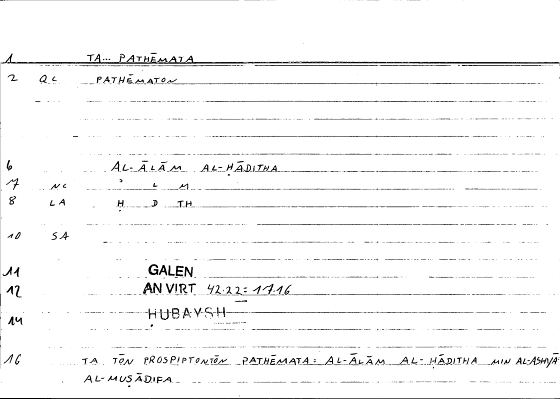 1 TA... PATHĒMATA
2 QC PATHĒMATON
6 AL-ĀLĀM AL-ḤĀDITHA
7 NC ʾ L M
8 LA Ḥ D TH
10 SA
11 GALEN
12 AN VIRT 42.22 = 17.16
14 ḤUBAYSH
16 TA TŌN PROSPIPTONTŌN PATHĒMATA : AL-ĀLĀM AL-ḤĀDITHA MIN AL-ASHYĀʾ
AL-MUṢĀDIFA